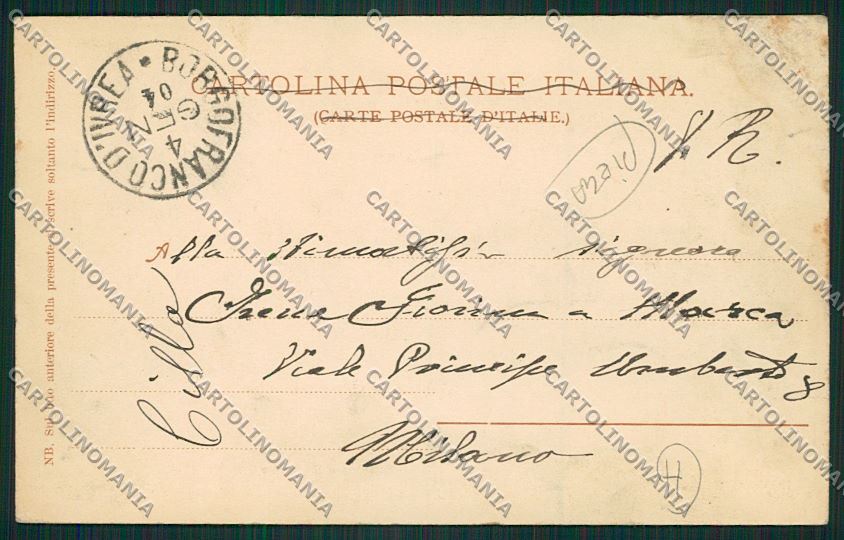 CARTOLINA POSTALE ITALIANA.
(CARTE POSTALE D'ITALIE.)
BORGOFRANCO D'IVREA *
4
GEN
04
NB. Sul lato anteriore della presente si scrive soltanto l'indirizzo.
Alla signora
Irene a
Viale Principe Umberto 8
Milano
H
CARTOLINOMANIA